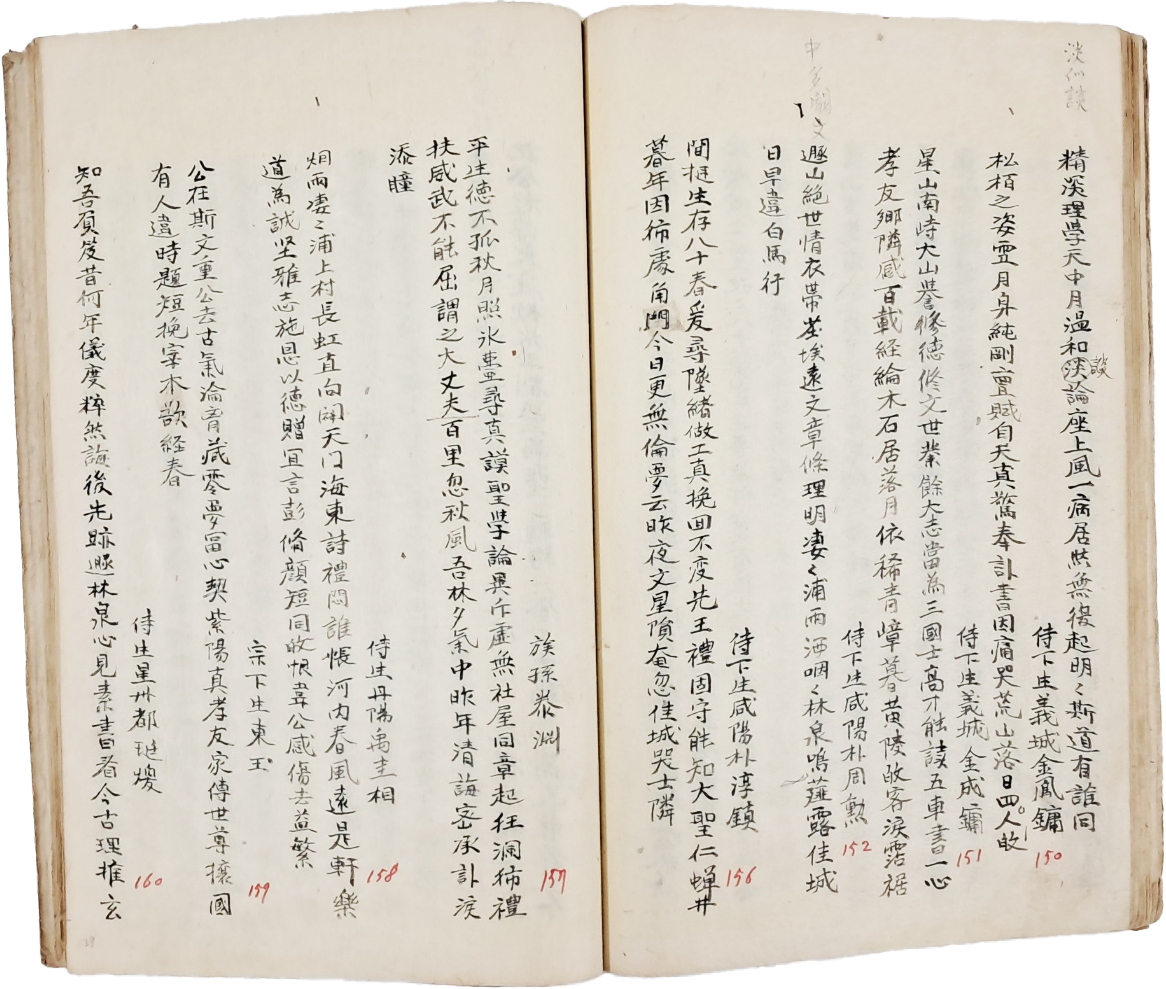 淡似談
精深理學天中月溫和淡論座上風一病居然無復起明〻斯道有誰同
談
侍下生義城金鳳鏞
150
松栢之姿雪月身純剛稟賦自天真驚奉訃書因痛哭荒山落日四人攸
侍下生義城金成鏞
151
星山南峙大山譽修德修文世業餘大志當為三國士高才能該五車書一心
孝友鄉隣感百載經綸木石居落月依稀靑嶂暮黃陵故客淚霑裾
侍下生咸陽朴周勳
152
中多闕文
遯山絶世情衣帶塵埃遠文章條理明凄〻浦雨洒咽〻林泉鳴薤露佳城
日早違白馬行
侍下生咸陽朴淳鎮
156
間挺生存八十春爰尋墜緖做工真挽回不变先王禮固守能知大聖仁蟬井
暮年因痛處角門今日更無倫夢云昨夜文星隕奄忽佳城哭士隣
族孫泰淵
157
平生德不孤秋月照氷壺尋真謨聖學論異斥虛無社屋同章起狂瀾痛禮
扶威武不能屈謂之大丈夫百里忽秋風吾林夕氣中昨年清誨密承訃淚
添瞳
侍生丹陽禹圭相
158
烟雨凄〻浦上村長虹直向闢天门海東詩禮悶誰悵河内春風遠是軒樂
道為誠坚雅志施恩以德贈冝言彭脩顔短同收恨韋公感傷去益繁
宗下生東玉
159
公在斯文重公去古氣淪育葳零夢冨心契紫陽真孝友家傳世尊攘國
有人違時題短挽宰木欲経春
侍生星州都珽燰
160
知吾負笈昔何年儀度粹然誨後先跡遯林泉心見素書看今古理推玄